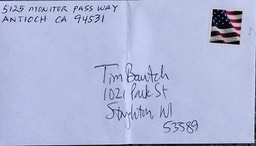 5125 MONITOR PASS WAY
ANTIOCH CA 94531
Tim Bautch
1021 Park St
Stoughton, WI
53589